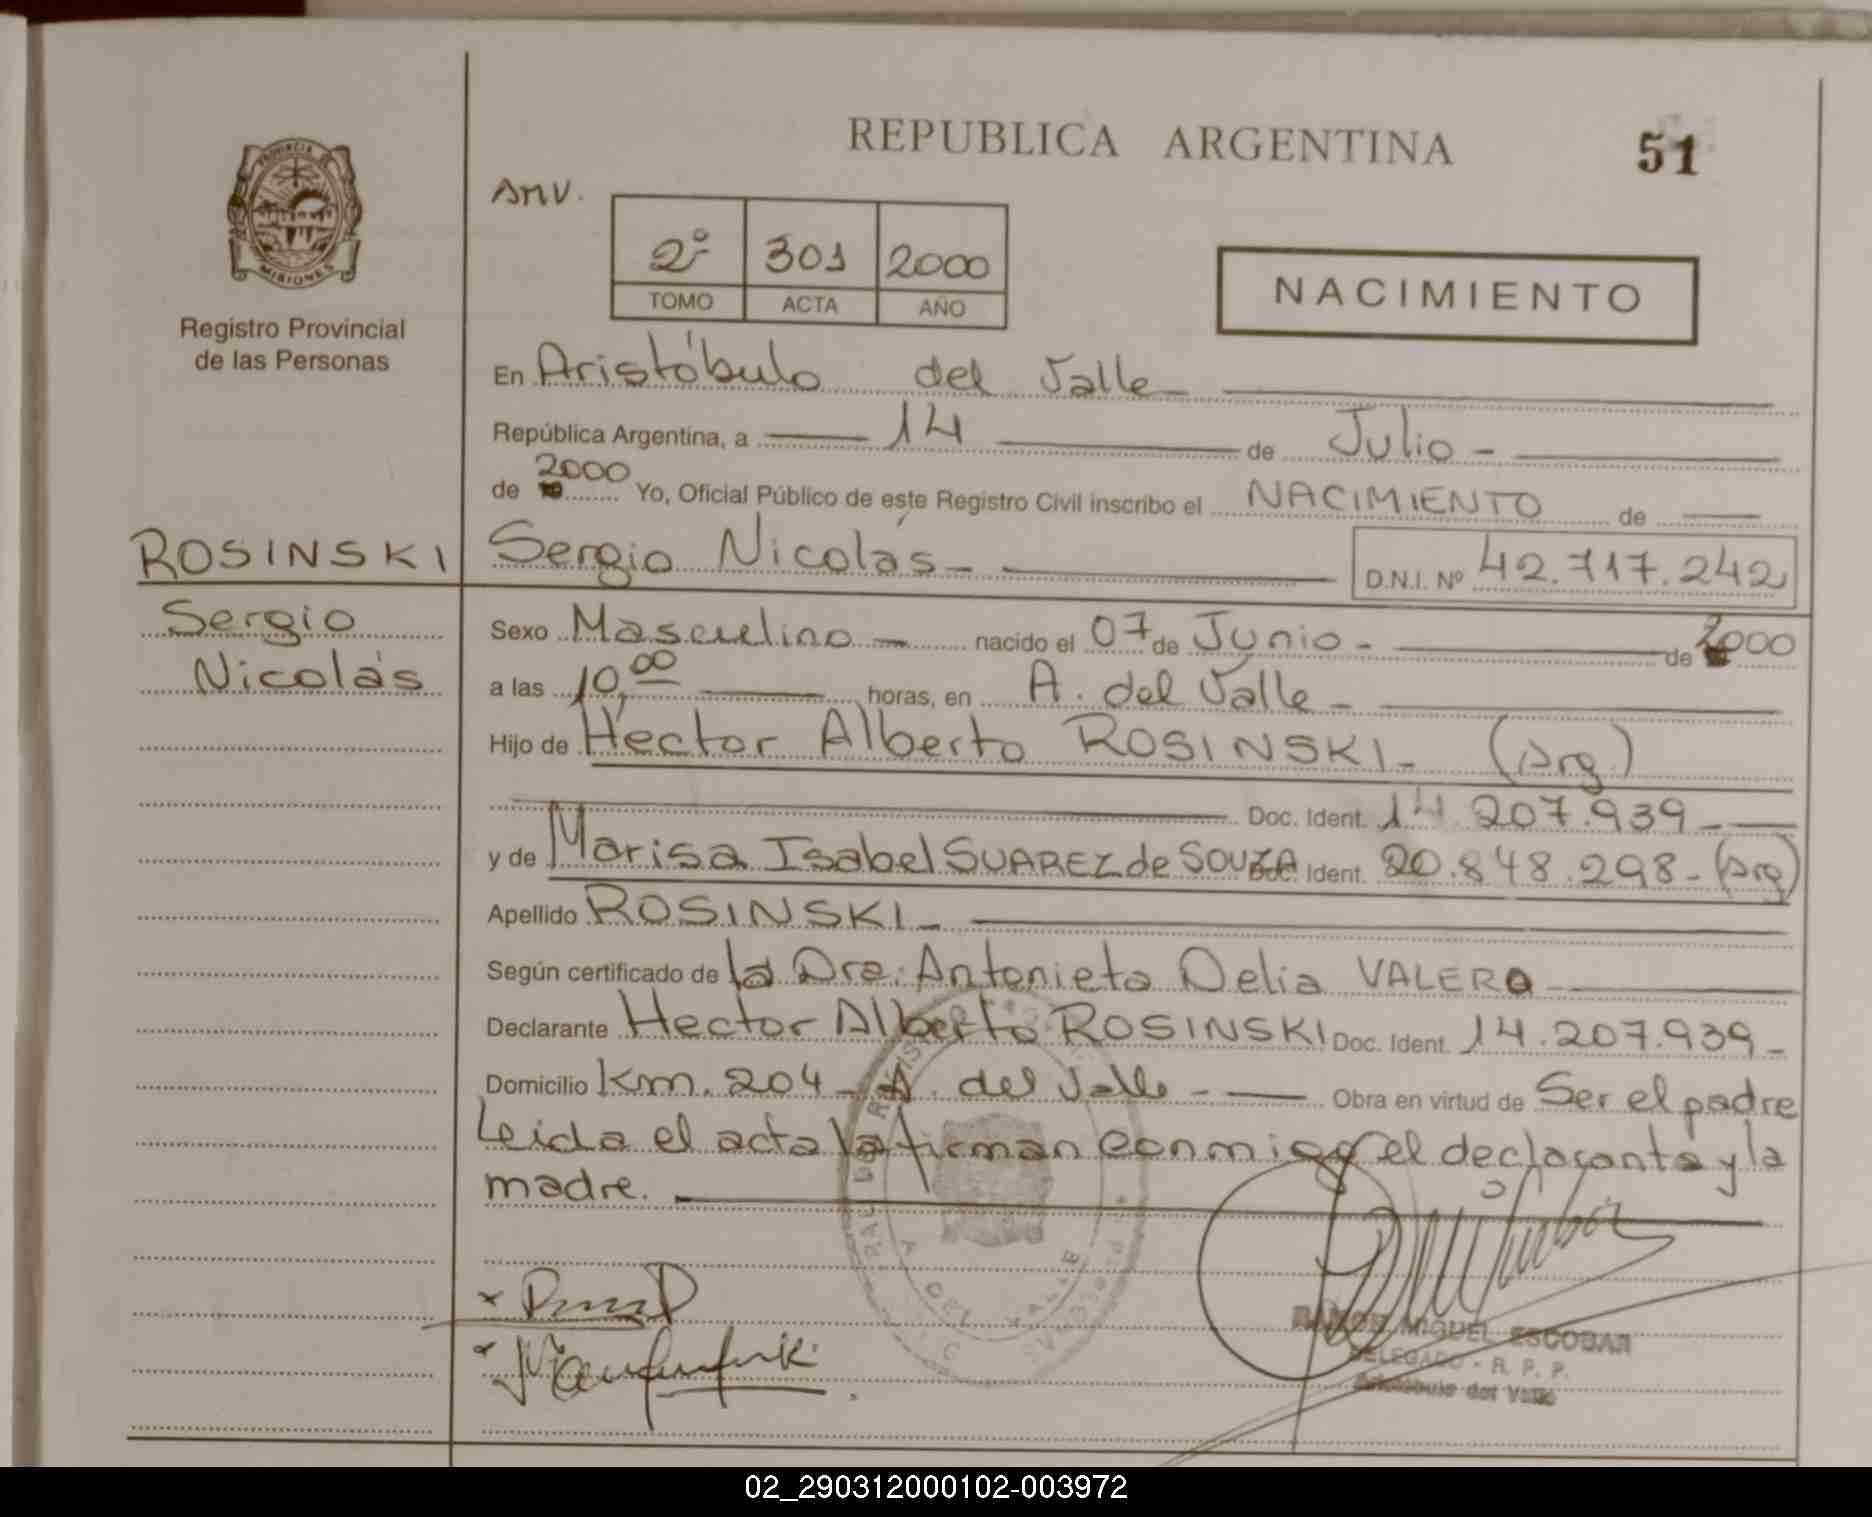 REPUBLICA ARGENTINA
51
PROVINCIA DE
MISIONES
Registro Provincial
de las Personas
2º 301 2000
TOMO ACTA AÑO
NACIMIENTO
En Aristóbulo del Valle
República Argentina, a 14 de Julio -
de 2000 Yo, Oficial Público de este Registro Civil inscribo el NACIMIENTO de
ROSINSKI Sergio Nicolás - D.N.I. Nº 42.717.242
Sergio
Nicolás
Sexo Masculino - nacido el 07 de Junio - de 2000
a las 10,00 horas, en A. del Valle -
Hijo de Hector Alberto ROSINSKI - (Arg)
Doc. Ident. 14.207.939 -
y de Marisa Isabel SUAREZ de SOUZA Doc. Ident. 20.848.298 - (Arg)
Apellido ROSINSKI -
Según certificado de la Dra. Antonieta Delia VALERO
Declarante Hector Alberto ROSINSKI Doc. Ident. 14.207.939 -
Domicilio Km. 204 - A. del Valle - Obra en virtud de Ser el padre
Leida el acta la firman conmigo el declarante y la
madre.
RAMON MIGUEL ESCOBAR
DELEGADO - R. P. P.
Aristobulo del Valle
02_290312000102-003972